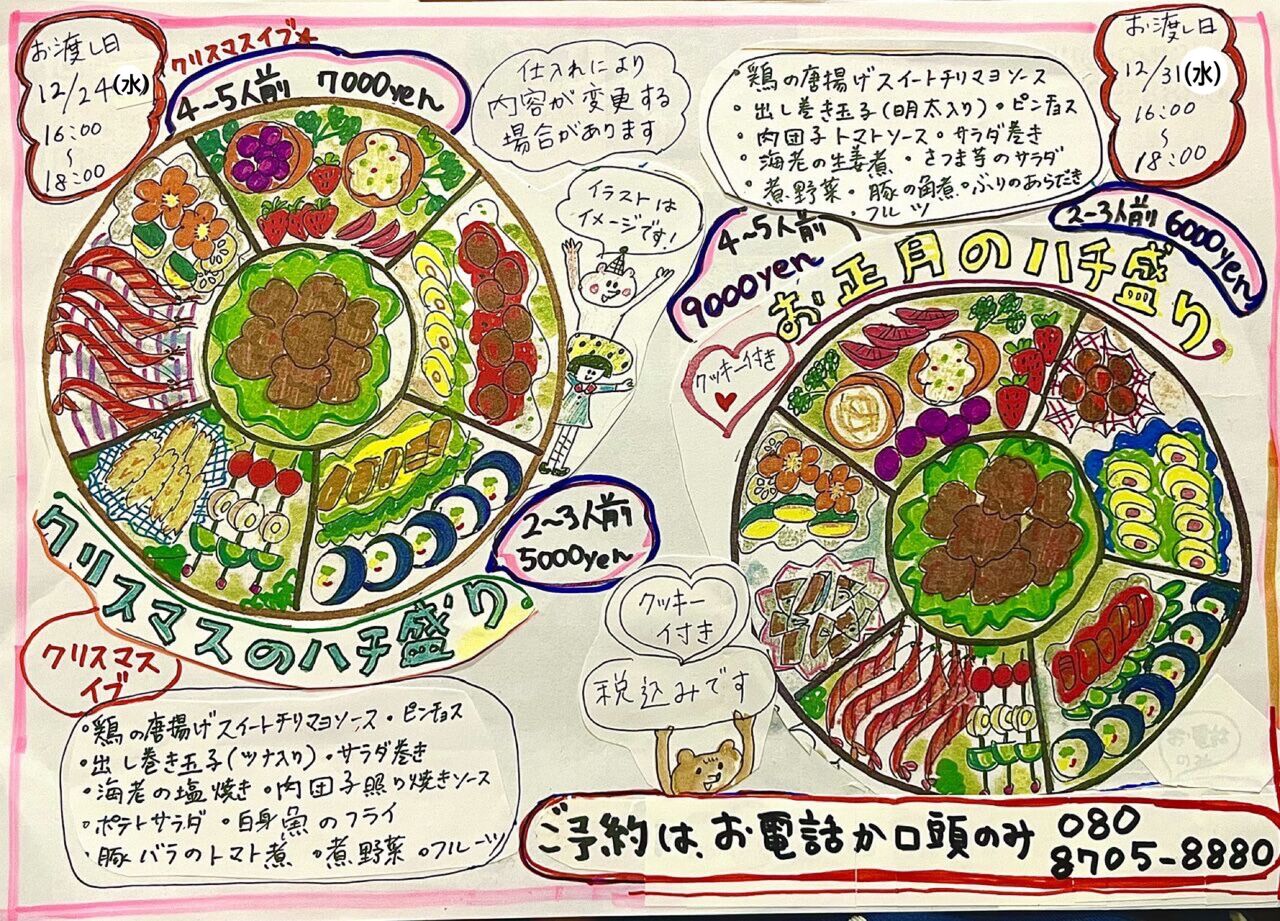 お渡し日
12/24(水)
16:00
〜
18:00
クリスマスイブ
4〜5人前 7000yen
仕入れにより
内容が変更する
場合があります
イラストは
イメージです!
クリスマスのハチ盛り
2〜3人前
5000yen
クリスマス
イブ
・鶏の唐揚げスイートチリマヨソース・ピンチョス
・出し巻き玉子(ツナ入り)・サラダ巻き
・海老の塩焼き・肉団子照り焼きソース
・ポテトサラダ・白身魚のフライ
・豚バラのトマト煮・煮野菜・フルーツ
・鶏の唐揚げスイートチリマヨソース
・出し巻き玉子(明太入り)・ピンチョス
・肉団子トマトソース・サラダ巻き
・海老の生姜煮・さつま芋のサラダ
・煮野菜・豚の角煮・ぶりのあらだき
・フルーツ
お渡し日
12/31(水)
16:00
〜
18:00
4〜5人前
9000yen
2-3人前 6000yen
お正月のハチ盛り
クッキー付き
クッキー
付き
税込みです
ご予約は、お電話か口頭のみ
080
8705-8880